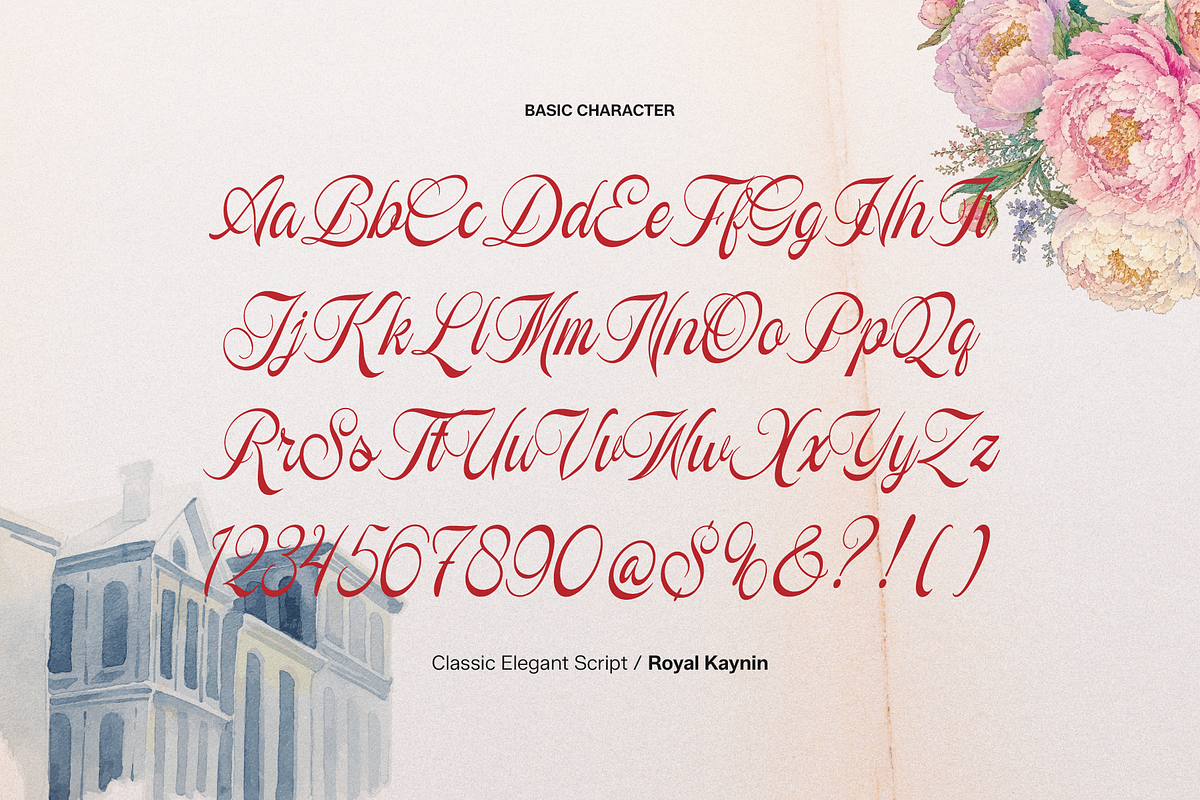 BASIC CHARACTER
Aa Bb Cc Dd Ee Ff Gg Hh Ii
Jj Kk Ll Mm Nn Oo Pp Qq
Rr Ss Tt Uu Vv Ww Xx Yy Zz
1234567890@$%&?!()
Classic Elegant Script / Royal Kaynin